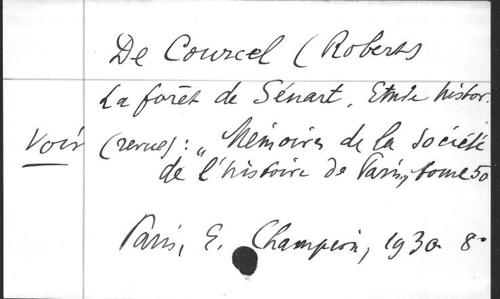 De Courcel (Robert)
La forêt de Sénart. Etude histor.
Voir (revue) : „Mémoires de la Société
de l'histoire de Paris„ tome 50
Paris, E. Champion, 1930 8°